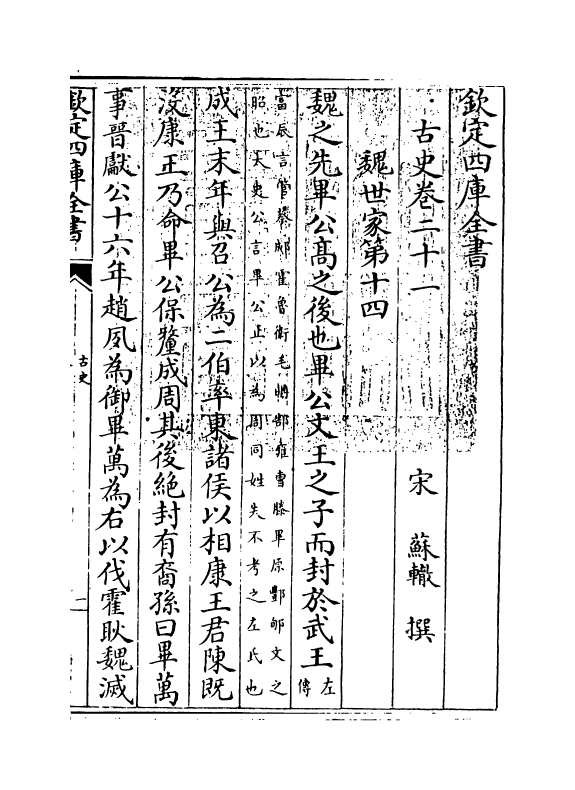 欽定四庫全書
古史卷二十一
宋 蘇轍 撰
魏世家第十四
魏之先畢公高之後也畢公文王之子而封於武王左傳
富辰言管蔡郕霍魯衛毛聃郜雍曹滕畢原酆郇文之
昭也太史公言畢公止以為周同姓失不考之左氏也
成王末年與召公為二伯率東諸侯以相康王君陳既
沒康王乃命畢公保釐成周其後絶封有裔孫曰畢萬
事晉獻公十六年趙夙為御畢萬為右以伐霍耿魏滅
欽定四庫全書
古史
一